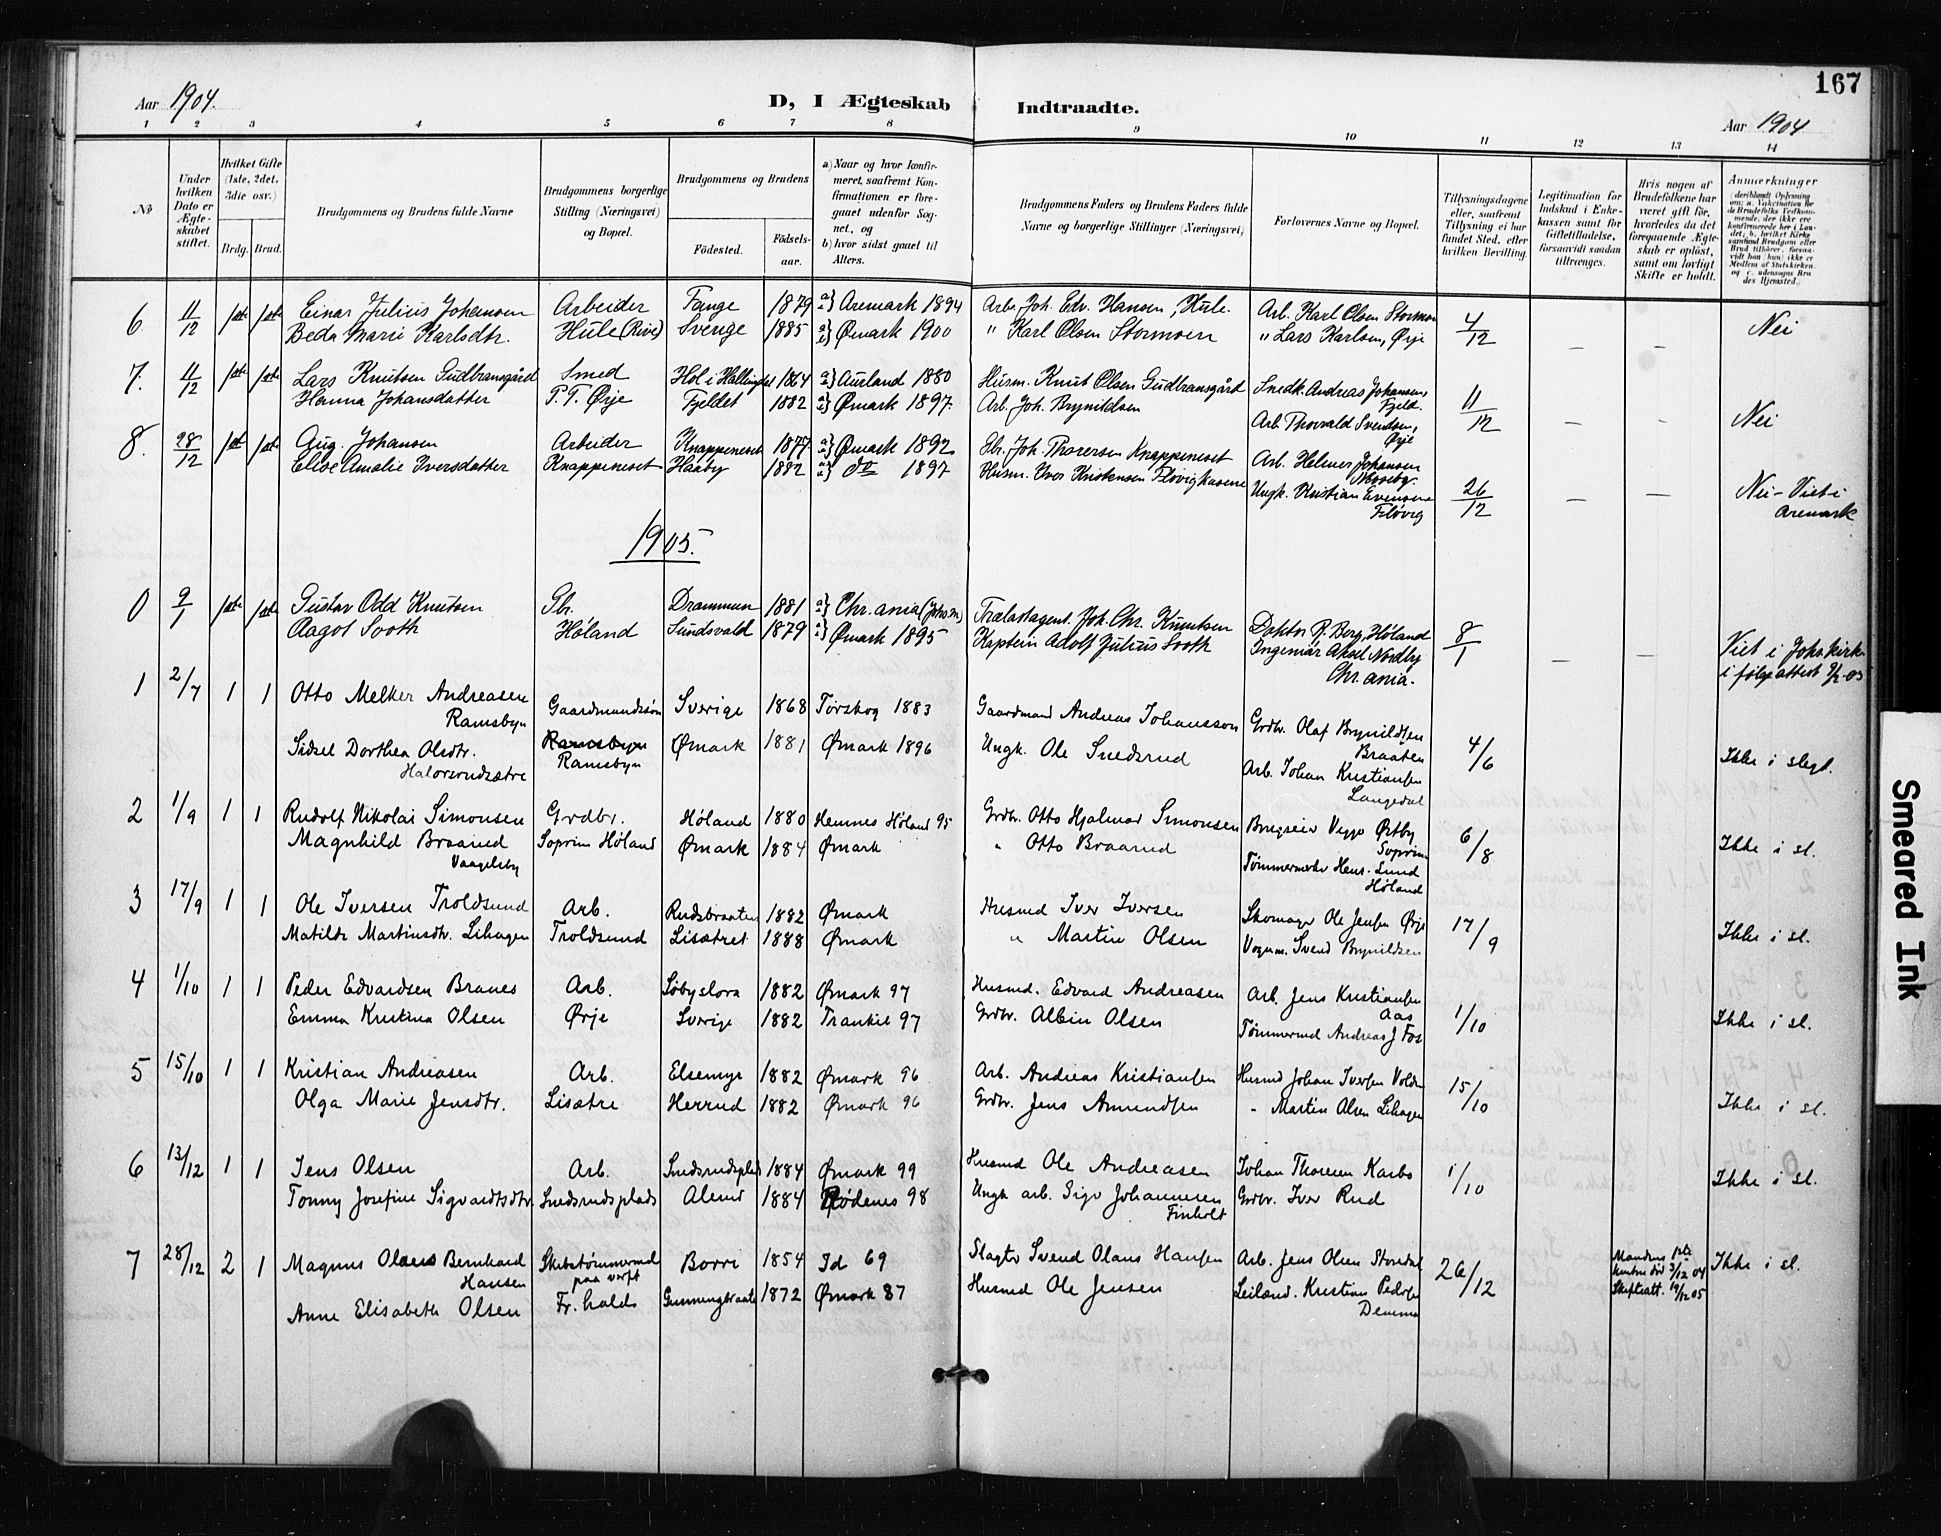 167
Aar 1904.
D, I Ægteskab Indtraadte.
Aar 1904
1 2 3 4 5 6 7 8 9 10 11 12 13 14
No
Under hvilken Dato er Ægteskabet stiftet.
Hvilket Gifte (1ste, 2det, 3die osv.)
Brdg. Brud.
Brudgommens og Brudens fulde Navne
Brudgommens borgerlige Stilling (Næringsvei) og Bopæl.
Brudgommens og Brudens
Fødested. Fødselsaar.
a) Naar og hvor konfirmeret, saafremt Konfirmationen er foregaaet udenfor Sognet, og
b) hvor sidst gaaet til Alters.
Brudgommens Faders og Brudens Faders fulde Navne og borgerlige Stillinger (Næringsvei)
Forlovernes Navne og Bopæl.
Tillysningsdagene eller, saafremt Tillysning ei har fundet Sted, efter hvilken Bevilling.
Legitimation for Indskud i Enkekassen samt for Giftetilladelse, forsaavidt saadan tiltrænges.
Hvis nogen af Brudefolkene har været gift før, hvorledes da det foregaaende Ægteskab er opløst, samt om lovligt Skifte er holdt.
Anmærkninger
(deriblandt Oplysning om: a. Vakcination for de Brudefolks Vedkommende, der ikke ere konfirmerede her i Landet; b. hvilket Kirkesamfund Brudgom eller Brud tilhører, forsaavidt han (hun) ikke er Medlem af Statskirken og c. udensogns Brudes Hjemsted.)
6. 11/12 1ste 1ste Einar Julius Johansen Arbeider Tange 1879 a) Aremark 1894 Arb. Joh. Edv. Hansen, Hule. Arb. Karl Olsen Stormoen 4/12 — — Nei
Beda Marie Karlsdtr. Hule (Rive) Sverige 1885 a) Ømark 1900 " Karl Olsen Stormoen " Lars Karlsen, Ørje
7. 11/12 1ste 1ste Lars Knutsen Gudbransgård Smed Hol i Hallingdal 1864 a) Aurland 1880 Husm. Knut Olsen Gudbransgård Snedk. Andreas Johansen, Fjeld. 11/12 — — Nei
Hanna Johansdatter P.T. Ørje Fjeldet 1882 a) Ømark 1897. Arb. Joh. Brynildsen Arb. Thorvald Svendsen, Ørje
8. 28/12 1ste 1ste Aug. Johansen Arbeider Knappeneset 1877 a) Ømark 1892 Gbr. Joh. Thorersen Knappeneset Arb. Helmer Johansen Mosseby. 26/12 — — Nei - Viet i Aremark
Elise Amalie Iversdatter Knappeneset Haaby 1882 a) do 1897 Husm. Iver Kristensen Fløvighusene Ungk. Kristian Evensen Fløvig
1905.
0 9/1 1ste 1ste Gustav Odd Knutsen Gbr. Drammen 1881 a) Chr.ania (Johs.m) Trælastagent. Joh. Chr. Knutsen Doktor P. Berg, Høland 8/1 — — Viet i Johs. kirk.
Aagot Sooth Høland Sundsvald 1879 a) Ømark 1895 Kaptein Adolf Julius Sooth Ingeniør Aksel Nordby Chr.ania. i følge attest 9/2-05
1 2/7 1 1 Otto Melker Andreasen Ramsbyn Gaardmandssøn Sverige 1868 Torskog 1883 Gaardmand Andreas Johansson Grdbr. Olaf Brynildsen Braaten 4/6 Ikke i slegt.
Sidsel Dorthea Olsdtr. Halvorsrudsætre Ramsbyn Ramsbyn Ømark 1881 Ømark 1896 Ungk. Ole Snedsrud Arb. Johan Kristiansen Langedal
2 1/9 1 1 Rudolf Nikolai Simonsen Grdbr. Høland 1880 Hemnes Høland 95 Grdbr. Otto Hjalmar Simonsen Brugseier Viggo Østby Soprim 6/8 Ikke i sl.
Magnhild Braarud Vaagelsby Soprim Høland Ømark 1884 Ømark " Otto Braarud Tømmermerker Hans. Lund Høland
3 17/9 1 1 Ole Iversen Troldsund Arb. Rudsbraaten 1882 Ømark Husmd Iver Iversen Skomager Ole Jensen Ørje 17/9 Ikke i sl.
Matilde Martinsdtr. Lihagen Troldsund Lisætret 1888 Ømark " Martin Olsen Vognm. Svend Brynildsen
4 1/10 1 1 Peder Edvardsen Branes Arb. Søbyslora 1882 Ømark 97 Husmd. Edvard Andreasen Arb. Jens Kristiansen Aas 1/10 Ikke i sl.
Emma Kristina Olsen Ørje Sverige 1882 Trankil 97 Grdbr. Albin Olsen Tømmermd Andreas J Fos
5 15/10 1 1 Kristian Andreasen Arb. Elsemyr 1882 Ømark 96 Arb. Andreas Kristiansen Husmd Johan Iversen Volden 15/10 Ikke i sl.
Olga Marie Jensdtr. Lisætre Herrud 1882 Ømark 96 Grdbr. Jens Amundsen " Martin Olsen Lihagen
6 13/12 1 1 Jens Olsen Arb. Snedsrudsplads 1884 Ømark 99 Husmd Ole Andreasen Johan Thoresen Karbo 1/10 Ikke i sl.
Tonny Josefine Sigvardtsdtr. Snedsrudsplads Alerud 1884 Rødenes 98 Ungk arb. Sigv Johannesen Finholt Grdbr. Iver Rud
7 28/12 2 1 Magnus Olaus Bernhard Hansen Skibstømmermd paa verft Borre 1854 Id 69 Slagter Svend Olaus Hansen Arb. Jens Olsen Storedal 26/12 Mandens 1ste hustru død 3/12 04 Skifteatt. 19/12 05 Ikke i sl.
Anne Elisabeth Olsen Fr.halds Gunnengbraaten 1872 Ømark 87 Husmd Ole Jensen Leiland. Kristian Pedersen Demma
Smeared Ink